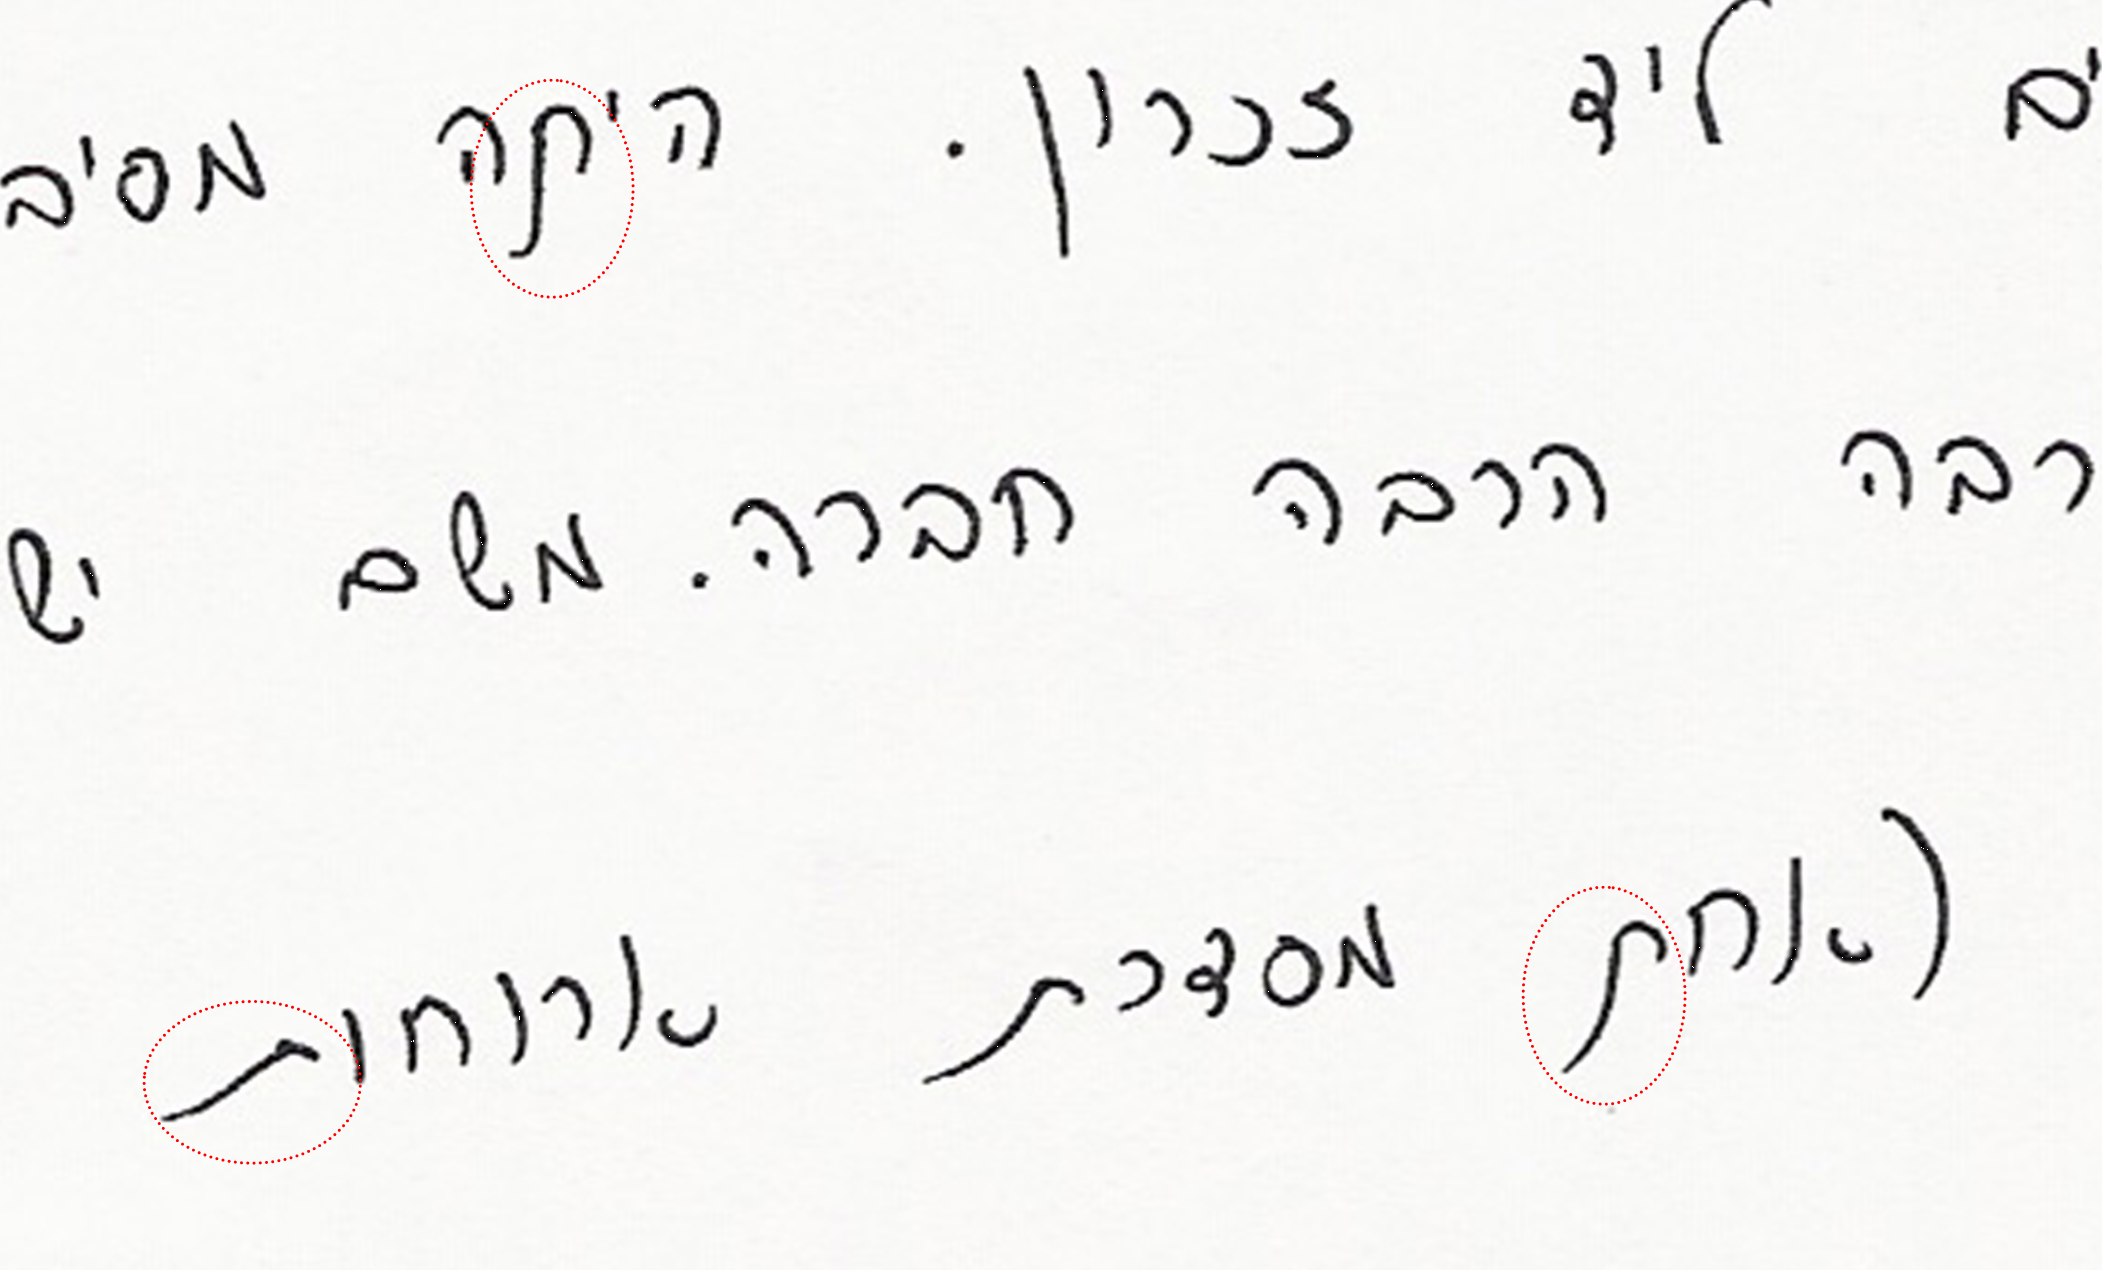 ים ליד זכרון. היתה מסיב
רבה הרבה חברה. משם יש
(אחת מסדרת ארוחות